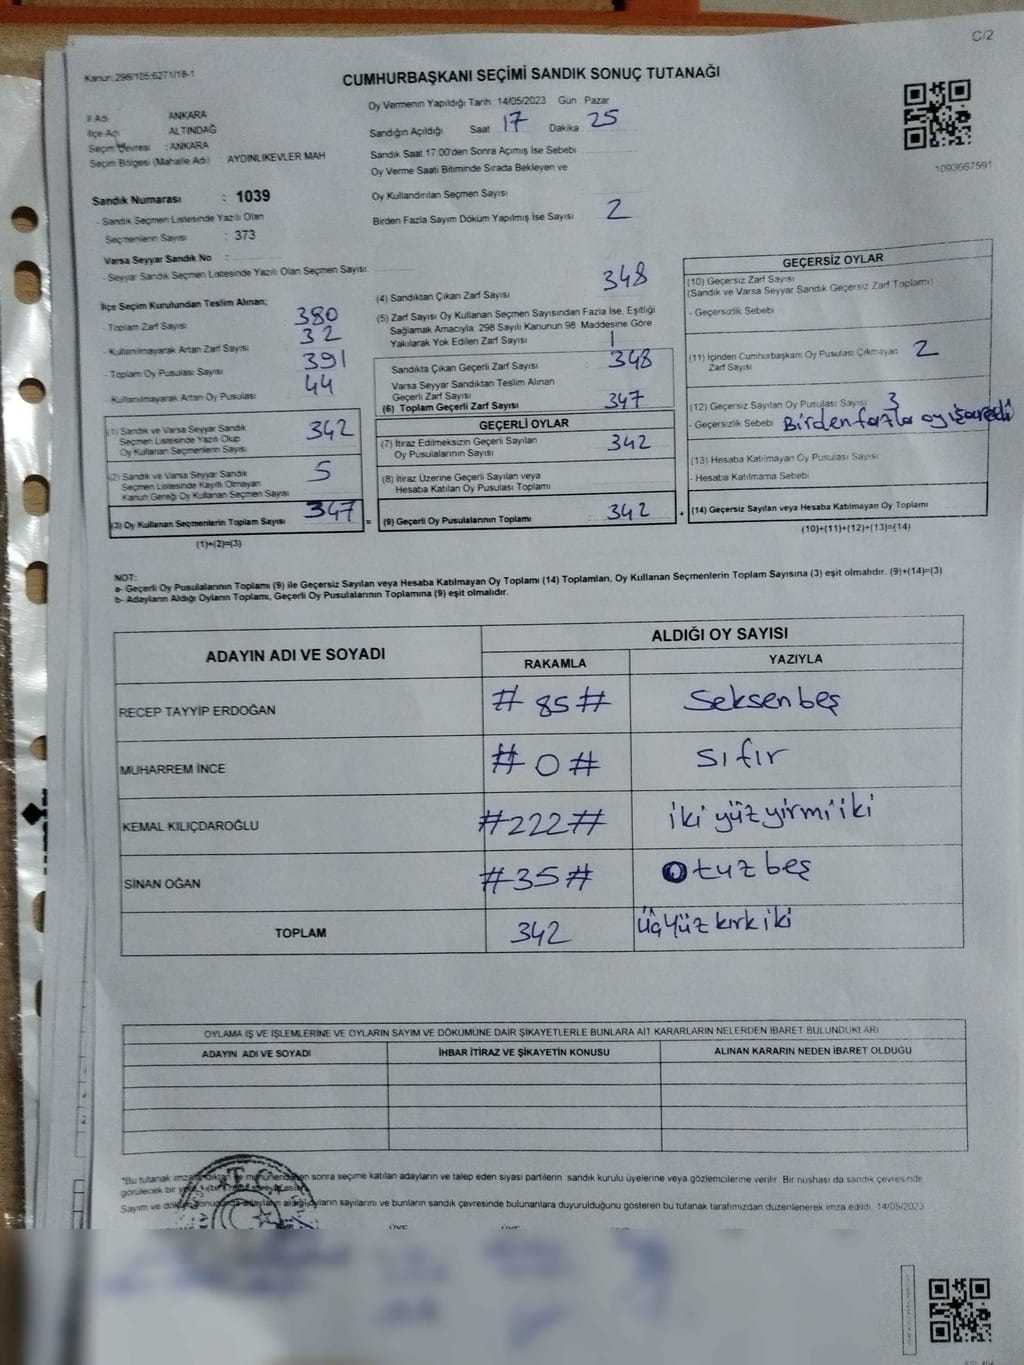 C/2
Kanun:298/105;6271/18-1
CUMHURBAŞKANI SEÇİMİ SANDIK SONUÇ TUTANAĞI
İl Adı ANKARA
İlçe Adı ALTINDAĞ
Seçim Çevresi : ANKARA
Seçim Bölgesi (Mahalle Adı) AYDINLIKEVLER MAH
Oy Vermenin Yapıldığı Tarih 14/05/2023 Gün : Pazar
Sandığın Açıldığı Saat 17 Dakika 25
Sandık Saat 17:00'den Sonra Açımış İse Sebebi
Oy Verme Saati Bitiminde Sırada Bekleyen ve
Oy Kullandırılan Seçmen Sayısı
Birden Fazla Sayım Döküm Yapılmış İse Sayısı 2
1093667591
Sandık Numarası : 1039
- Sandık Seçmen Listesinde Yazılı Olan
Seçmenlerin Sayısı : 373
Varsa Seyyar Sandık No :
- Seyyar Sandık Seçmen Listesinde Yazılı Olan Seçmen Sayısı:
İlçe Seçim Kurulundan Teslim Alınan;
- Toplam Zarf Sayısı 380
- Kullanılmayarak Artan Zarf Sayısı 32
- Toplam Oy Pusulası Sayısı 391
- Kullanılmayarak Artan Oy Pusulası 44
(1) Sandık ve Varsa Seyyar Sandık
Seçmen Listesinde Yazılı Olup
Oy Kullanan Seçmenlerin Sayısı 342
(2) Sandık ve Varsa Seyyar Sandık
Seçmen Listesinde Kayıtlı Olmayan
Kanun Gereği Oy Kullanan Seçmen Sayısı 5
(3) Oy Kullanan Seçmenlerin Toplam Sayısı 347
(1)+(2)=(3)
(4) Sandıktan Çıkan Zarf Sayısı 348
(5) Zarf Sayısı Oy Kullanan Seçmen Sayısından Fazla İse, Eşitliği
Sağlamak Amacıyla, 298 Sayılı Kanunun 98. Maddesine Göre
Yakılarak Yok Edilen Zarf Sayısı 1
Sandıkta Çıkan Geçerli Zarf Sayısı 348
Varsa Seyyar Sandıktan Teslim Alınan
Geçerli Zarf Sayısı
(6) Toplam Geçerli Zarf Sayısı 347
GEÇERLİ OYLAR
(7) İtiraz Edilmeksizin Geçerli Sayılan
Oy Pusulalarının Sayısı 342
(8) İtiraz Üzerine Geçerli Sayılan veya
Hesaba Katılan Oy Pusulası Toplamı
= (9) Geçerli Oy Pusulalarının Toplamı 342 +
GEÇERSİZ OYLAR
(10) Geçersiz Zarf Sayısı
(Sandık ve Varsa Seyyar Sandık Geçersiz Zarf Toplamı)
- Geçersizlik Sebebi
(11) İçinden Cumhurbaşkanı Oy Pusulası Çıkmayan
Zarf Sayısı 2
(12) Geçersiz Sayılan Oy Pusulası Sayısı 3
- Geçersizlik Sebebi Birden fazla oy işaretli
(13) Hesaba Katılmayan Oy Pusulası Sayısı
- Hesaba Katılmama Sebebi
(14) Geçersiz Sayılan veya Hesaba Katılmayan Oy Toplamı
(10)+(11)+(12)+(13)=(14)
NOT:
a- Geçerli Oy Pusulalarının Toplamı (9) ile Geçersiz Sayılan veya Hesaba Katılmayan Oy Toplamı (14) Toplamları, Oy Kullanan Seçmenlerin Toplam Sayısına (3) eşit olmalıdır. (9)+(14)=(3)
b- Adayların Aldığı Oyların Toplamı, Geçerli Oy Pusulalarının Toplamına (9) eşit olmalıdır.
ADAYIN ADI VE SOYADI ALDIĞI OY SAYISI
RAKAMLA YAZIYLA
RECEP TAYYİP ERDOĞAN # 85 # Seksen beş
MUHARREM İNCE # 0 # sıfır
KEMAL KILIÇDAROĞLU #222# iki yüz yirmi iki
SİNAN OĞAN #35# Otuz beş
TOPLAM 342 üç yüz kırk iki
OYLAMA İŞ VE İŞLEMLERİNE VE OYLARIN SAYIM VE DÖKÜMÜNE DAİR ŞİKAYETLERLE BUNLARA AİT KARARLARIN NELERDEN İBARET BULUNDUKLARI
ADAYIN ADI VE SOYADI İHBAR İTİRAZ VE ŞİKAYETİN KONUSU ALINAN KARARIN NEDEN İBARET OLDUĞU
*Bu tutanak sonra seçime katılan adayların ve talep eden siyasi partilerin sandık kurulu üyelerine veya gözlemcilerine verilir. Bir nüshası da sandık çevresinde
görülecek bir
Sayım ve aldığı oyların sayılarını ve bunların sandık çevresinde bulunanlara duyurulduğunu gösteren bu tutanak tarafımızdan düzenlenerek imza edildi. 14/05/2023
ÜYE ÜYE